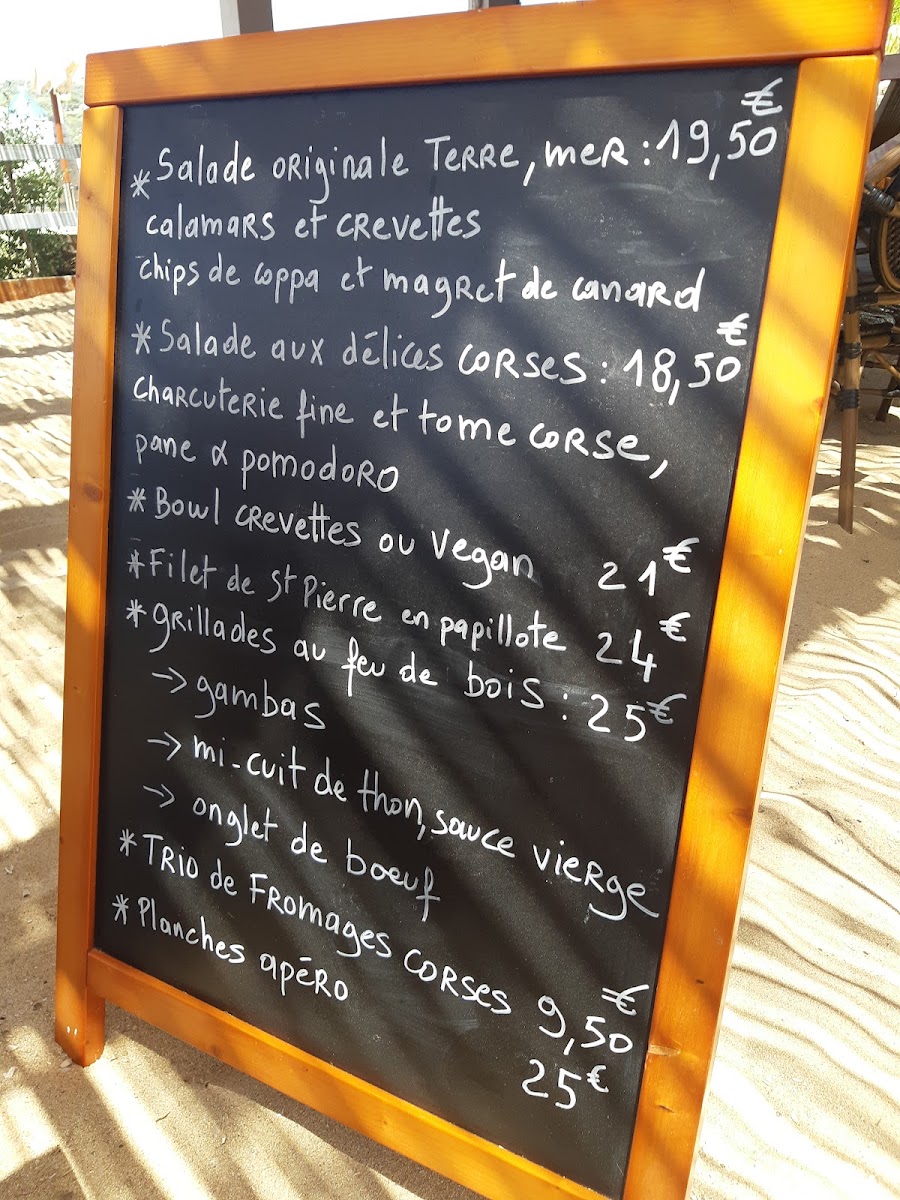 * Salade originale Terre, mer : 19,50 €
calamars et crevettes
chips de coppa et magret de canard
* Salade aux délices corses : 18,50 €
charcuterie fine et tome corse,
pane & pomodoro
* Bowl crevettes ou Vegan 21 €
* Filet de St Pierre en papillote 24 €
* grillades au feu de bois : 25 €
→ gambas
→ mi-cuit de thon, sauce vierge
→ onglet de boeuf
* Trio de Fromages corses 9,50 €
* Planches apéro 25 €